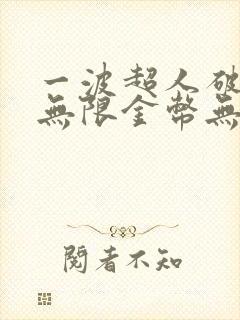 一波超人破
無限金幣無
閱者不知